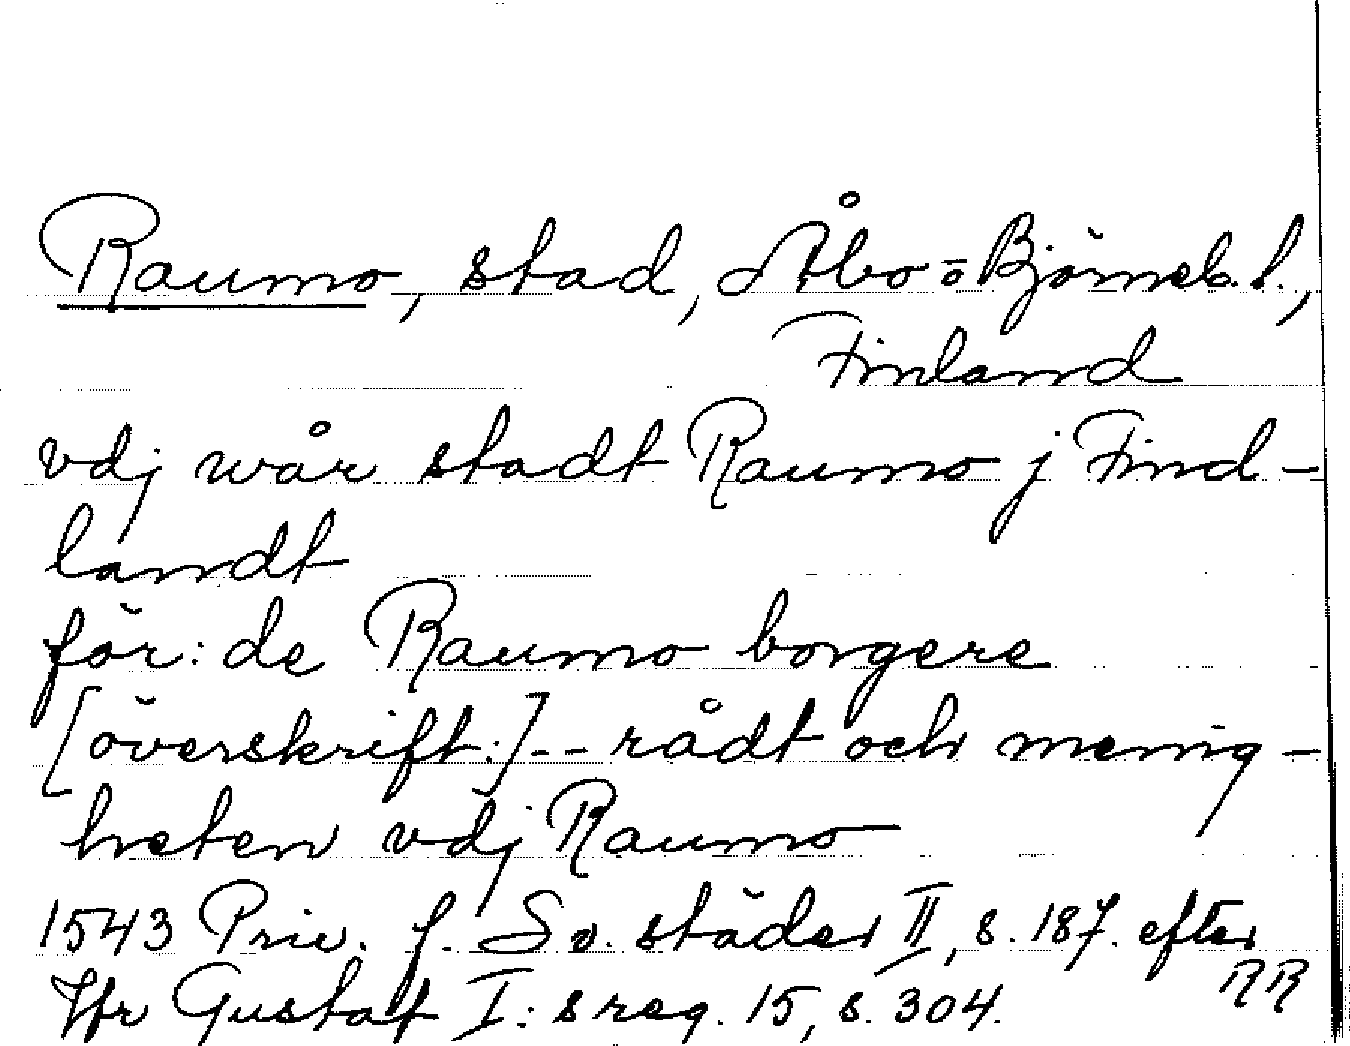 Raumo, stad, Åbo o Björneb. l.,
Finland
vdj wår stadt Raumo j Find-
landt
för: de Raumo borgere
[överskrift:]-- rådt och menig-
heten vdj Raumo
1543 Priv. f. Sv. städer II, s. 187. efter
RR
Jfr Gustaf I:s reg. 15, s. 304.